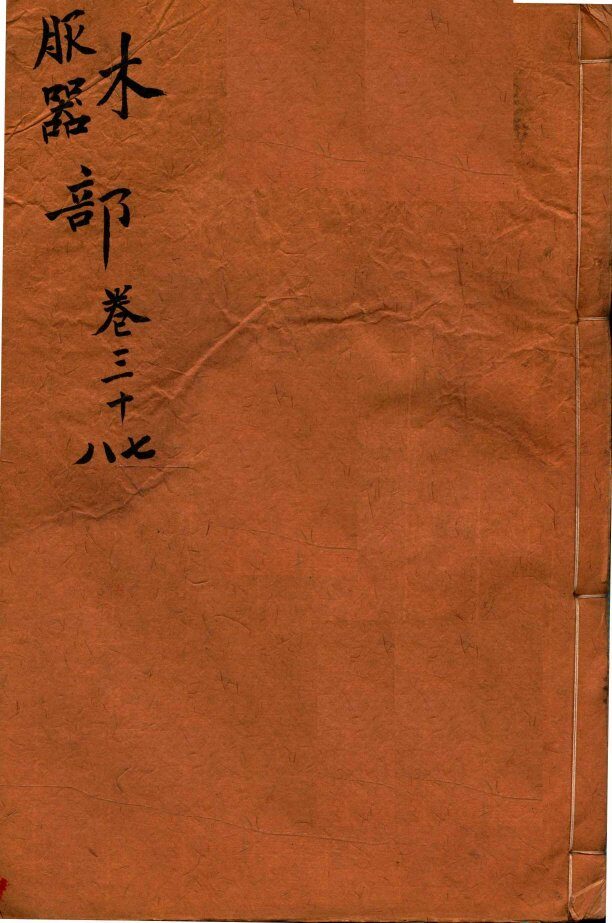 木
服器
部
卷三十
七八